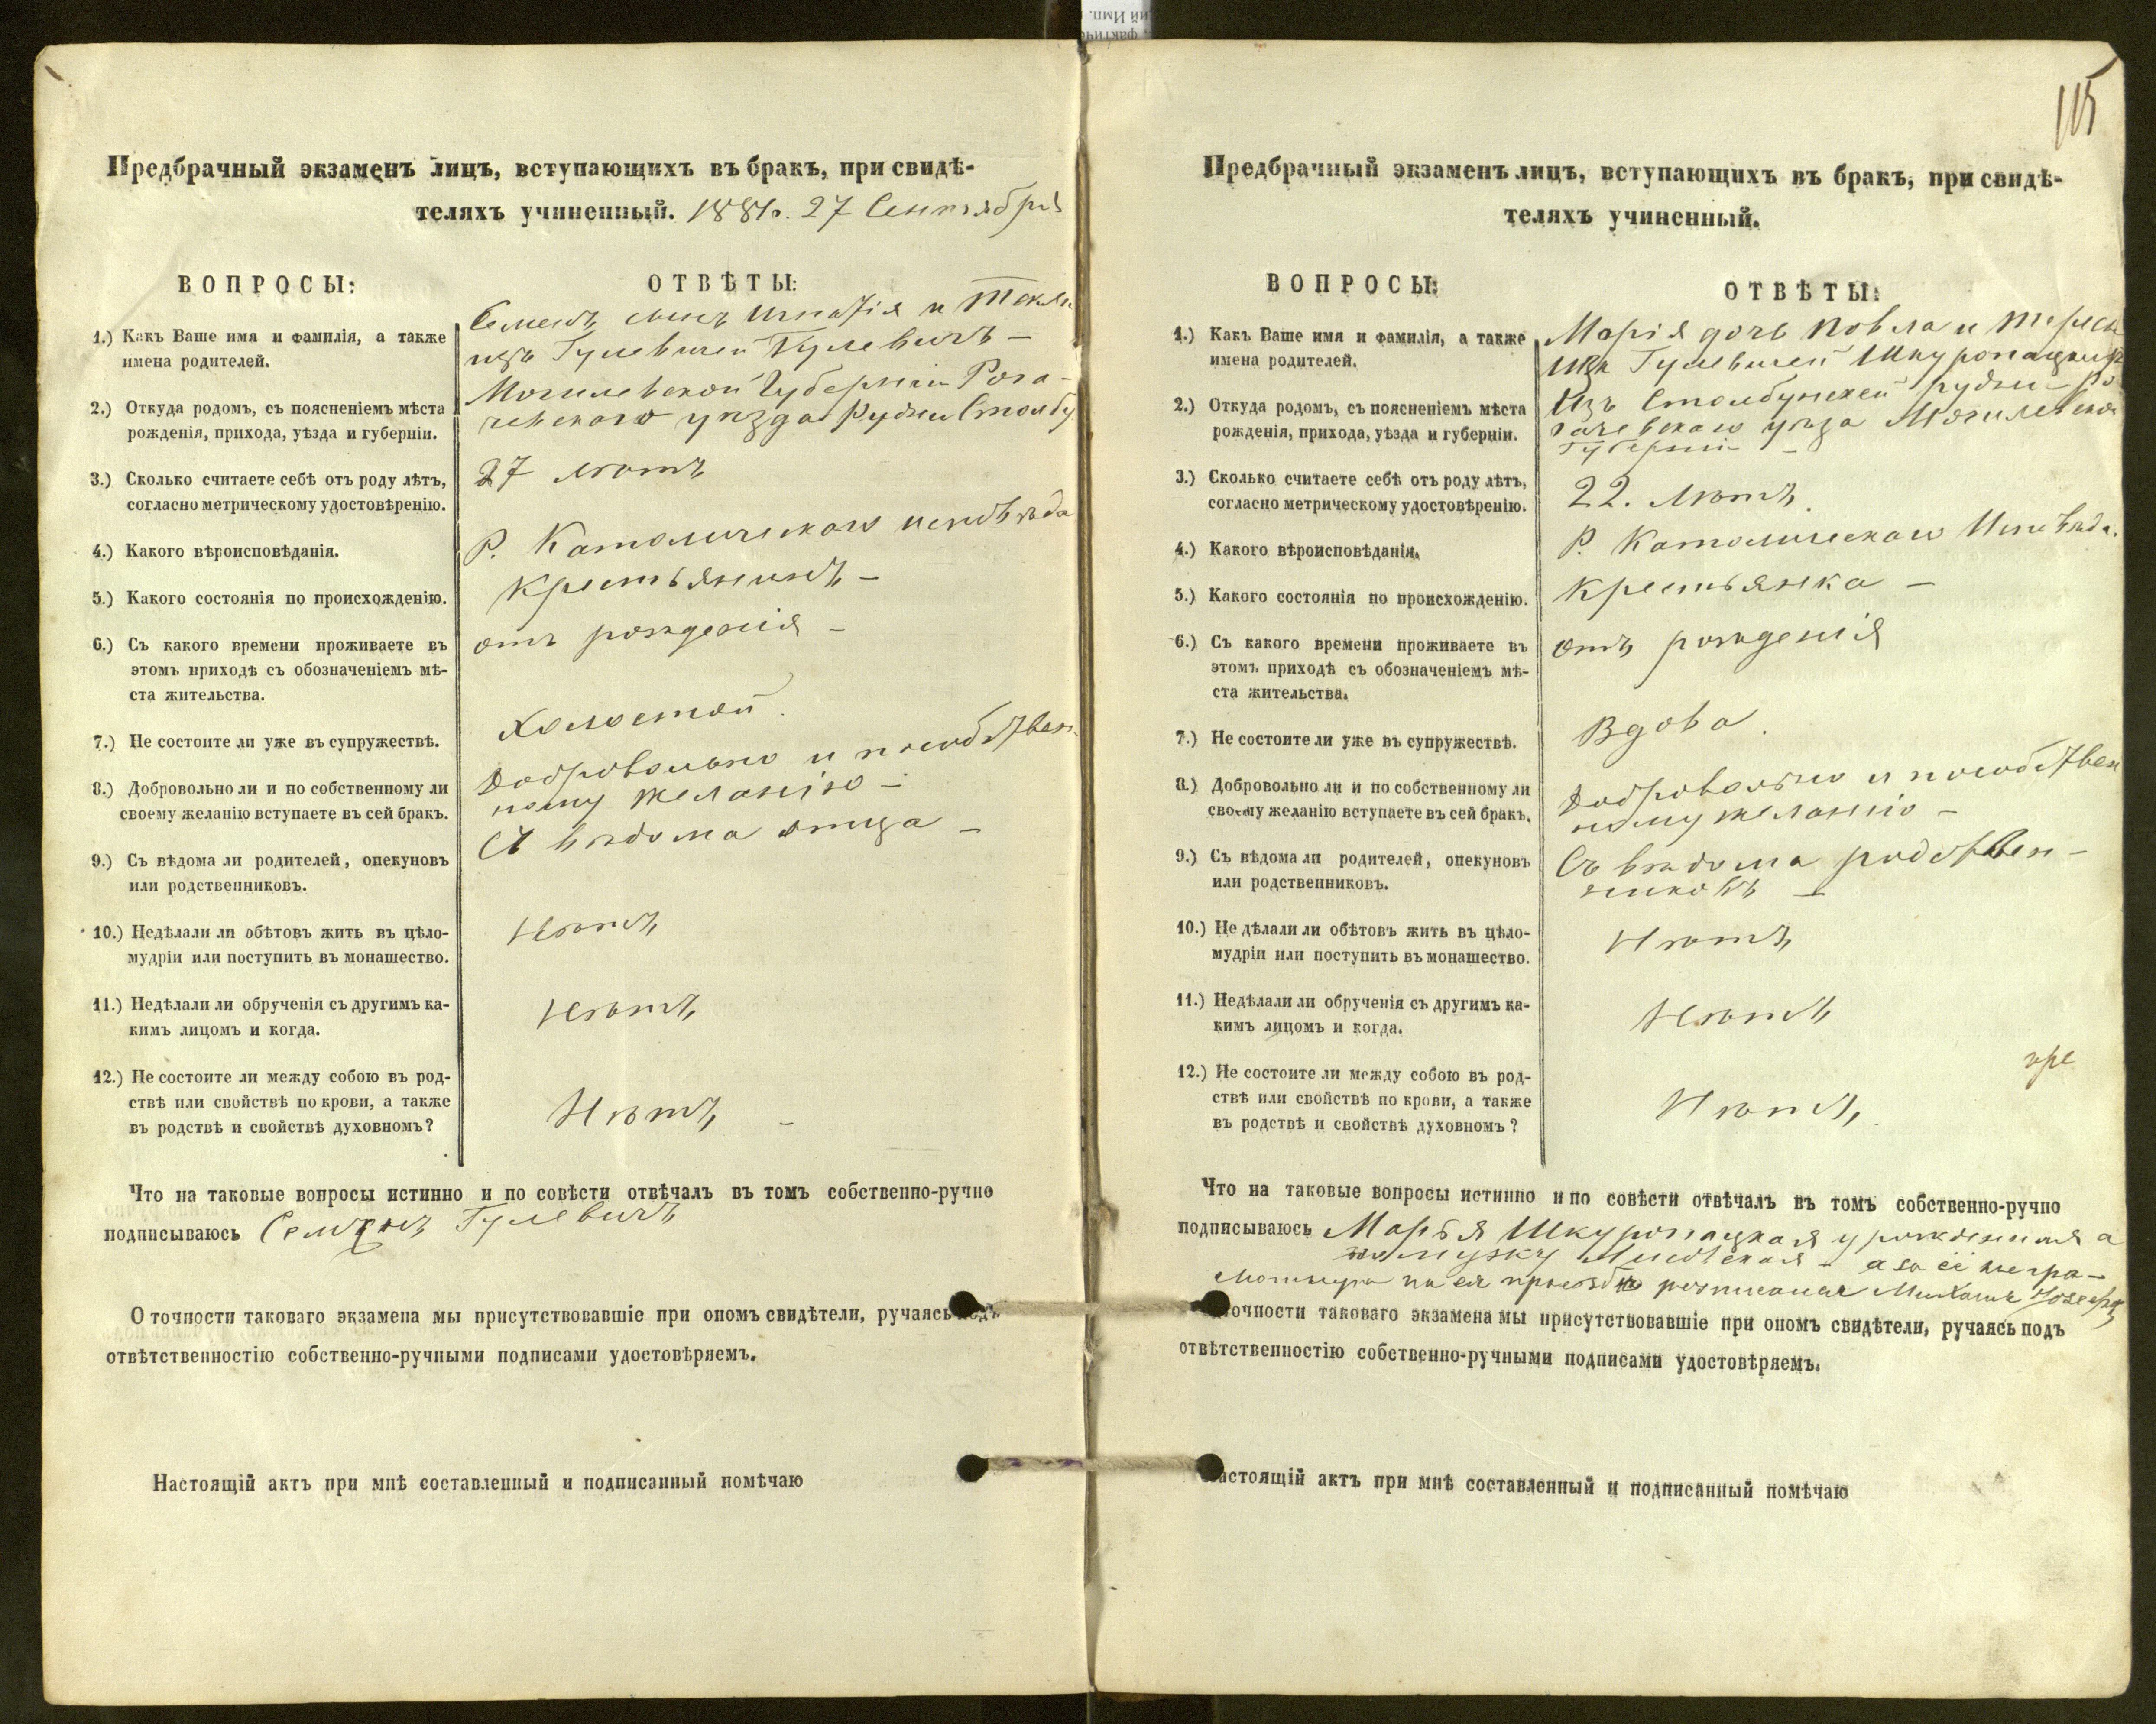 Предбрачный экзаменъ лицъ, вступающихъ въ бракъ, при свидѣ-
теляхъ учиненный. 1881г. 27 Сентября
ВОПРОСЫ:
ОТВѢТЫ:
1.) Какъ Ваше имя и фамилія, а также
имена родителей.
Семенъ сынъ Игнатія и Текли
изъ Гулевичей Гулевичъ —
2.) Откуда родомъ, съ поясненіемъ мѣста
рожденія, прихода, уѣзда и губерніи.
Могилевской Губерніи Рога-
чевского уѣзда Рудни Столбу
3.) Сколько считаете себѣ отъ роду лѣтъ,
согласно метрическому удостовѣренію.
27 лѣтъ
4.) Какого вѣроисповѣданія.
Р. Католического исповѣда
5.) Какого состоянія по происхожденію.
Крестьянинъ —
6.) Съ какого времени проживаете въ
этомъ приходѣ съ обозначеніемъ мѣ-
ста жительства.
отъ рожденія —
7.) Не состоите ли уже въ супружествѣ.
Холостой.
8.) Добровольно ли и по собственному ли
своему желанію вступаете въ сей бракъ.
Добровольно и по собствен
ному желанію —
9.) Съ вѣдома ли родителей, опекуновъ
или родственниковъ.
Съ вѣдома отца —
10.) Недѣлали ли обѣтовъ жить въ цѣло-
мудріи или поступить въ монашество.
Нѣтъ
11.) Недѣлали ли обрученія съ другимъ ка-
кимъ лицомъ и когда.
Нѣтъ
12.) Не состоите ли между собою въ род-
ствѣ или свойствѣ по крови, а также
въ родствѣ и свойствѣ духовномъ?
Нѣтъ —
Что на таковые вопросы истинно и по совѣсти отвѣчалъ въ томъ собственно-ручно
подписываюсь Семенъ Гулевичъ
О точности таковаго экзамена мы присутствовавшіе при ономъ свидѣтели, ручаясь подъ
отвѣтственностію собственно-ручными подписами удостовѣряемъ.
Настоящій актъ при мнѣ составленный и подписанный помѣчаю
115
Предбрачный экзаменъ лицъ, вступающихъ въ бракъ, при свидѣ-
теляхъ учиненный.
ВОПРОСЫ:
ОТВѢТЫ:
1.) Какъ Ваше имя и фамилія, а также
имена родителей.
Марія дочь Павла и Тересы
изъ Гулевичей Шкуропацкихъ
2.) Откуда родомъ, съ поясненіемъ мѣста
рожденія, прихода, уѣзда и губерніи.
Изъ Столбунской Рудни Ро
гачевскаго уѣзда Могилевской
Губерніи —
3.) Сколько считаете себѣ отъ роду лѣтъ,
согласно метрическому удостовѣренію.
22. лѣтъ.
4.) Какого вѣроисповѣданія.
Р. Католического Исповѣда.
5.) Какого состоянія по происхожденію.
Крестьянка —
6.) Съ какого времени проживаете въ
этомъ приходѣ съ обозначеніемъ мѣ-
ста жительства.
отъ рожденія
7.) Не состоите ли уже въ супружествѣ.
Вдова.
8.) Добровольно ли и по собственному ли
своему желанію вступаете въ сей бракъ.
Добровольно и по собствен
ному желанію —
9.) Съ вѣдома ли родителей, опекуновъ
или родственниковъ.
Съ вѣдома родствен-
никовъ —
10.) Не дѣлали ли обѣтовъ жить въ цѣло-
мудріи или поступить въ монашество.
Нѣтъ
11.) Недѣлали ли обрученія съ другимъ ка-
кимъ лицомъ и когда.
Нѣтъ
12.) Не состоите ли между собою въ род-
ствѣ или свойствѣ по крови, а также
въ родствѣ и свойствѣ духовномъ?
Нѣтъ.
Что на таковые вопросы истинно и по совѣсти отвѣчалъ въ томъ собственно-ручно
подписываюсь Марья Шкуропацкая урожденная а
по мужу — а за её негра-
мотную по ея прозьбѣ росписался Михаилъ
точности таковаго экзамена мы присутствовавшіе при ономъ свидѣтели, ручаясь подъ
отвѣтственностію собственно-ручными подписами удостовѣряемъ.
Настоящій актъ при мнѣ составленный и подписанный помѣчаю